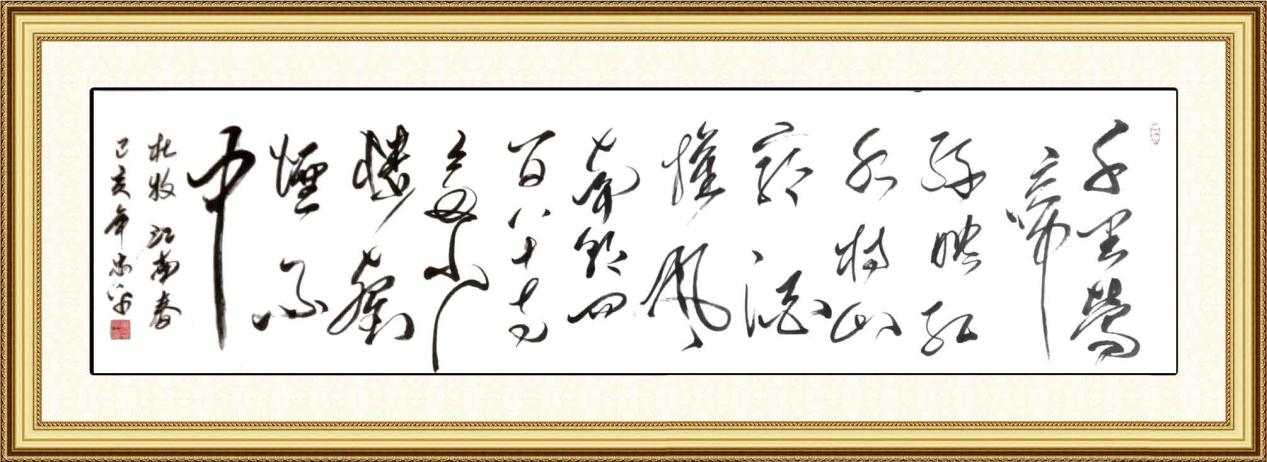 千里鶯
啼
绿映红
水村山
郭酒
旗風
南朝四
百八十寺
多少
楼臺
煙雨
中
杜牧 江南春
己亥年忠